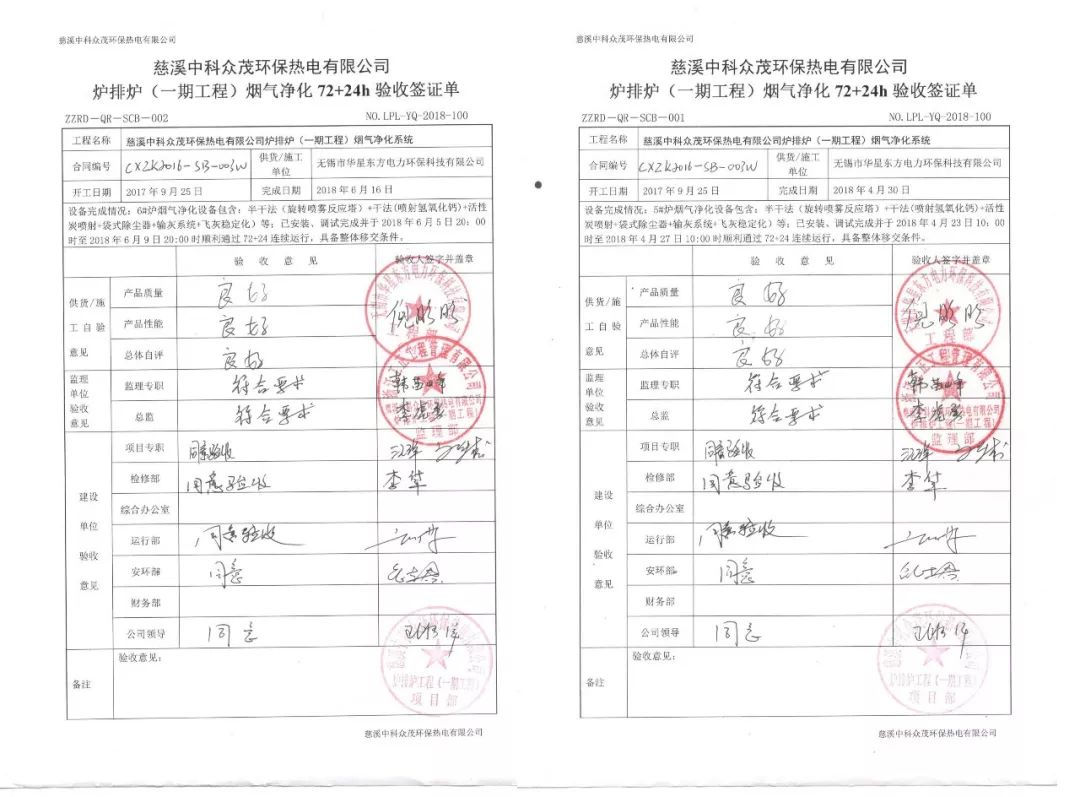 慈溪中科众茂环保热电有限公司
慈溪中科众茂环保热电有限公司
炉排炉（一期工程）烟气净化 72+24h 验收签证单
ZZRD－QR－SCB－002 NO.LPL-YQ-2018-100
工程名称 慈溪中科众茂环保热电有限公司炉排炉（一期工程）烟气净化系统
合同编号 CXZK2016-SB-003W 供货/施工单位 无锡市华星东方电力环保科技有限公司
开工日期 2017 年 9 月 25 日 完成日期 2018 年 6 月 16 日
设备完成情况：6#炉烟气净化设备包含：半干法（旋转喷雾反应塔）+干法(喷射氢氧化钙)+活性
炭喷射+袋式除尘器+输灰系统+飞灰稳定化）等；已安装、调试完成并于 2018 年 6 月 5 日 20：00
时至 2018 年 6 月 9 日 20:00 时顺利通过 72+24 连续运行，具备整体移交条件。
验 收 意 见 验收人签字并盖章
供货/施工自验意见
产品质量 良好
产品性能 良好
总体自评 良好
倪明明
工程部
监理单位验收意见
监理专职 符合要求
总监 符合要求
监理部
建设单位验收意见
项目专职 同意验收
检修部 同意验收 李华
综合办公室
运行部 同意验收
安环部 同意
财务部
公司领导 同意
备注 验收意见：
炉排炉工程（一期工程）
项目部
慈溪中科众茂环保热电有限公司
慈溪中科众茂环保热电有限公司
慈溪中科众茂环保热电有限公司
炉排炉（一期工程）烟气净化 72+24h 验收签证单
ZZRD－QR－SCB－001 NO.LPL-YQ-2018-100
工程名称 慈溪中科众茂环保热电有限公司炉排炉（一期工程）烟气净化系统
合同编号 CXZK2016-SB-003W 供货/施工单位 无锡市华星东方电力环保科技有限公司
开工日期 2017 年 9 月 25 日 完成日期 2018 年 4 月 30 日
设备完成情况：5#炉烟气净化设备包含：半干法（旋转喷雾反应塔）+干法(喷射氢氧化钙)+活性
炭喷射+袋式除尘器+输灰系统+飞灰稳定化）等；已安装、调试完成并于 2018 年 4 月 23 日 10；00
时至 2018 年 4 月 27 日 10:00 时顺利通过 72+24 连续运行，具备整体移交条件。
验 收 意 见 验收人签字并盖章
供货/施工自验意见
产品质量 良好
产品性能 良好
总体自评 良好
倪明明
工程部
监理单位验收意见
监理专职 符合要求
总监 符合要求
监理部
建设单位验收意见
项目专职 同意验收
检修部 同意验收 李华
综合办公室
运行部 同意验收
安环部 同意
财务部
公司领导 同意
备注 验收意见：
炉排炉工程（一期工程）
项目部
慈溪中科众茂环保热电有限公司